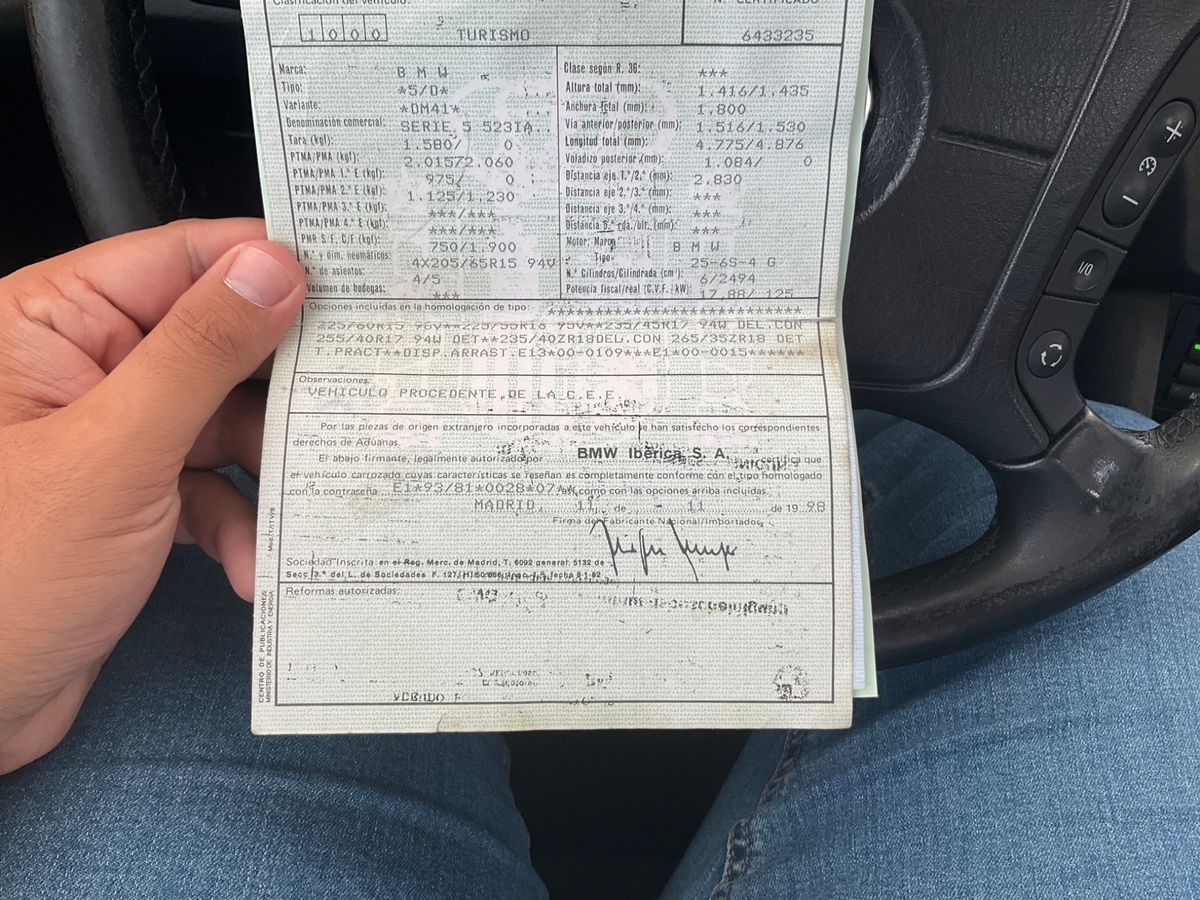 Clasificación del vehículo:
Nº CERTIFICADO
1000
TURISMO
6433235
Marca: B M W
Tipo: *5/D*
Variante: *DM41*
Denominación comercial: SERIE 5 523IA..
Tara (kgf): 1.580/ 0
PTMA/PMA (kgf): 2.015/2.060
PTMA/PMA 1.º E (kgf): 975/ 0
PTMA/PMA 2.º E (kgf): 1.125/1.230
PTMA/PMA 3.º E (kgf): ***/***
PTMA/PMA 4.º E (kgf): ***/***
PMR S/F. C/F (kgf): 750/1.900
N.º y dim. neumáticos: 4X205/65R15 94V
N.º de asientos: 4/5
Volumen de bodegas: ***
Clase según R. 36: ***
Altura total (mm): 1.416/1.435
Anchura total (mm): 1.800
Vía anterior/posterior (mm): 1.516/1.530
Longitud total (mm): 4.775/4.876
Voladizo posterior (mm): 1.084/ 0
Distancia eje 1.º/2.º (mm): 2.830
Distancia eje 2.º/3.º (mm): ***
Distancia eje 3.º/4.º (mm): ***
Distancia 5.ª rda./ult. (mm): ***
Motor: Marca B M W
Tipo 25-6S-4 G
N.º Cilindros/Cilindrada (cm³): 6/2494
Potencia fiscal/real (C.V.F. / kW): 17,88/ 125
Opciones incluidas en la homologación de tipo: ************************
225/60R15 96V**225/55R16 95V**235/45R17 94W DEL.CON
255/40R17 94W DET**235/40ZR18DEL.CON 265/35ZR18 DET
T.PRACT**DISP.ARRAST.E13*00-0109***E1*00-0015******
Observaciones:
VEHICULO PROCEDENTE DE LA C.E.E.
Por las piezas de origen extranjero incorporadas a este vehículo se han satisfecho los correspondientes
derechos de Aduanas.
El abajo firmante, legalmente autorizado por BMW Ibérica, S. A. certifica que
el vehículo carrozado cuyas características se reseñan es completamente conforme con el tipo homologado
con la contraseña E1*93/81*0028*07** así como con las opciones arriba incluidas.
MADRID, 11 de 11 de 1998
Firma del Fabricante Nacional/Importador,
Sociedad Inscrita en el Reg. Merc. de Madrid, T. 6092 general 5132 de
Secc. 3.ª del L. de Sociedades F. 127,
Reformas autorizadas:
CENTRO DE PUBLICACIONES
MINISTERIO DE INDUSTRIA Y ENERGIA
+
−
I/O